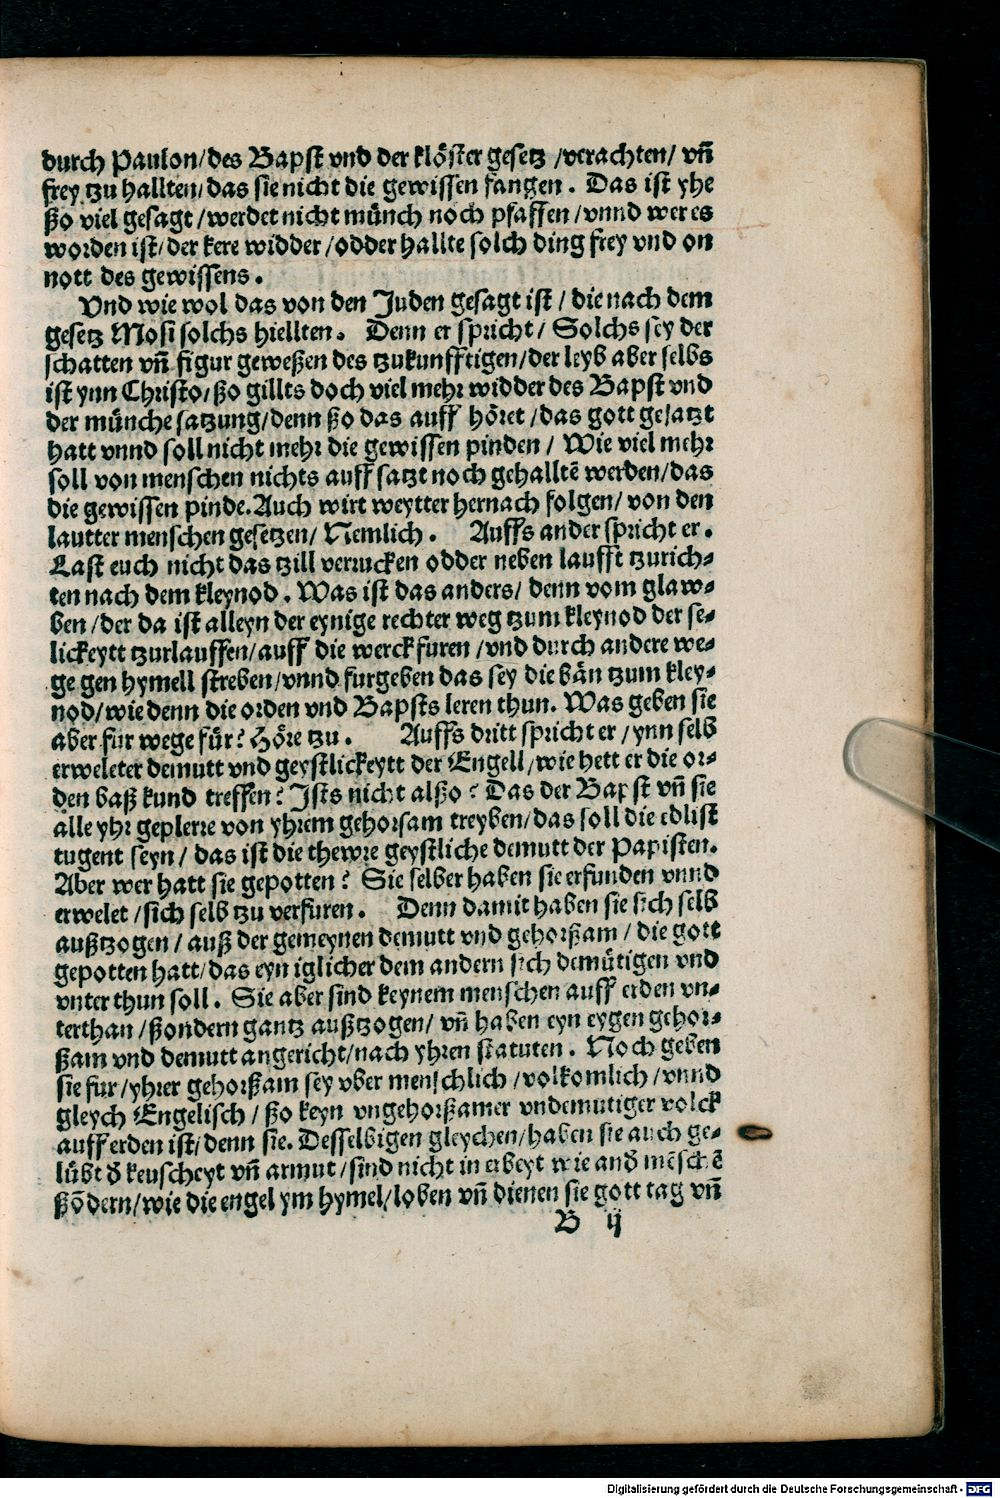 durch Paulon/des Bapst vnd der klöster gesetz /verachten/ vñ
frey tzu hallten/das sie nicht die gewissen fangen. Das ist yhe
ßo viel gesagt /werdet nicht münch noch pfaffen /vnnd wer es
worden ist/ der kere widder /odder hallte solch ding frey vnd on
nott des gewissens.
Vnd wie wol das von den Juden gesagt ist / die nach dem
gesetz Mosi solchs hiellten. Denn er spricht/ Solchs sey der
schatten vñ figur geweßen des tzukunfftigen/der leyb aber selbs
ist ynn Christo/ßo gillts doch viel mehr widder des Bapst vnd
der münche satzung/denn ßo das auff höret /das gott gesatzt
hatt vnnd soll nicht mehr die gewissen pinden / Wie viel mehr
soll von menschen nichts auff satzt noch gehalltē werden/das
die gewissen pinde. Auch wirt weytter hernach folgen/ von den
lautter menschen gesetzen/ Nemlich. Auffs ander spricht er.
Last euch nicht das tzill verrucken odder neben laufft tzurich⸗
ten nach dem kleynod. Was ist das anders/ denn vom glaw⸗
ben /der da ist alleyn der eynige rechter weg tzum kleynod der se⸗
lickeytt tzurlauffen/auff die werck furen /vnd durch andere we⸗
ge gen hymell streben/vnnd furgeben das sey die bän tzum kley⸗
nod/wie denn die orden vnd Bapsts leren thun. Was geben sie
aber fur wege für? Höre tzu. Auffs dritt spricht er /ynn selb
erweleter demutt vnd geystlickeytt der Engell/wie hett er die or⸗
den baß kund treffen? Ists nicht alßo? Das der Bapst vñ sie
alle yhr geplerre von yhrem gehorsam treyben/das soll die edlist
tugent seyn/ das ist die thewre geystliche demutt der Papisten.
Aber wer hatt sie gepotten? Sie selber haben sie erfunden vnnd
erwelet /sich selb tzu verfuren. Denn damit haben sie sich selb
außtzogen / auß der gemeynen demutt vnd gehorßam / die gott
gepotten hatt/das eyn iglicher dem andern sich demütigen vnd
vnter thun soll. Sie aber sind keynem menschen auff erden vn⸗
terthan /ßondern gantz außtzogen/ vñ haben eyn eygen gehor⸗
ßam vnd demutt angericht/nach yhren statuten. Noch geben
sie fur /yhrer gehorßam sey vber menschlich /volkomlich /vnnd
gleych Engelisch / ßo keyn vngehorßamer vndemutiger volck
auff erden ist/denn sie. Desselbigen gleychen/haben sie auch ge⸗
lübt d̄ keuscheyt vñ armut /sind nicht in erbeyt wie and̄ mēschē
ßōdern/wie die engel ym hymel/loben vñ dienen sie gott tag vñ
B ij
Digitalisierung gefördert durch die Deutsche Forschungsgemeinschaft - DFG